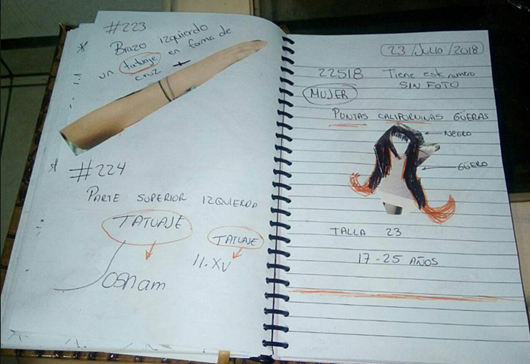 #223
* Brazo izquierdo
un tatuaje en forma de
cruz
* #224
PARTE SUPERIOR IZQUIERDA
TATUAJE
TATUAJE
Josnam
11-XV
23/Julio/2018
22518 Tiene este numero
SIN FOTO
MUJER
PUNTAS CALIFORNIANAS GÜERAS
NEGRO
GÜERO
TALLA 23
17-25 AÑOS